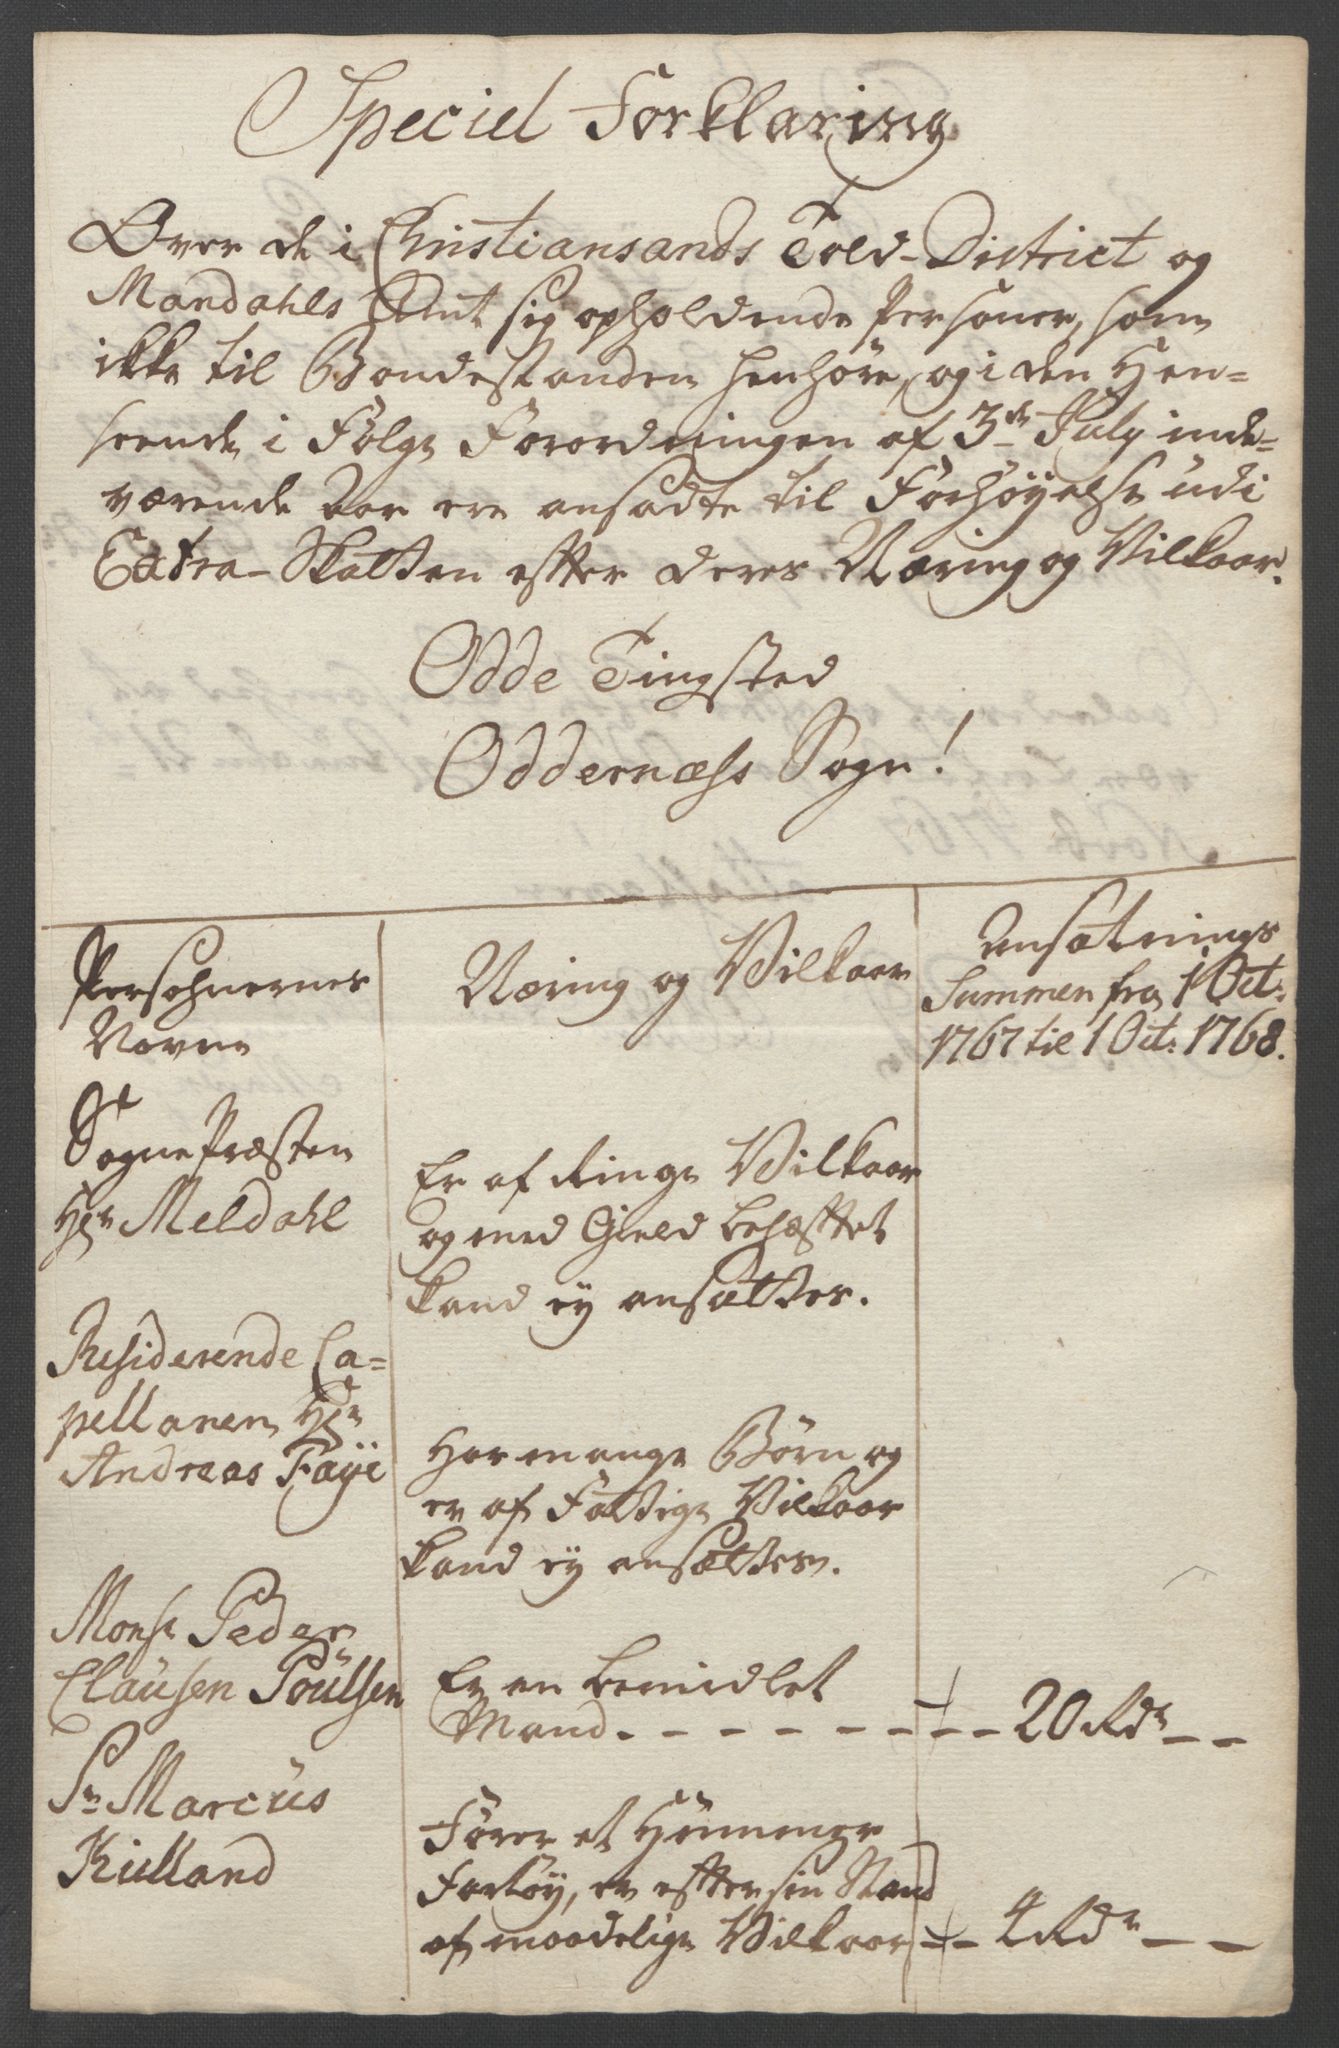 Speciel Forklaring
Over de i Christiansands Told-District og
Mandahls Amt sig opholdende Personer, som
ikke til Bondestanden henhøre, og i den Hen=
seende i Følge Forordningen af 3de July inde=
værende Aar ere ansadte til Forhøyelse udi
Extra-Skatten efter deres Næring og Vilkaar.
Odde Tingsted
Oddernæss Sogn!
Persohnernes
Navne
Næring og Vilkaar
Ansætnings
Summen fra 1 Oct:
1767 til 1 Oct: 1768.
Sogne Præsten
Hr Meldahl
Er af Ringe Vilkaar
og med Gield behæftet
kand ey ansættes.
Residerende Ca=
pellanen Hr
Andreas Faÿe
Har mange Børn og
er af Fattige Vilkaar
kand ey ansættes.
Monsr Peder
Clausen Poulsen
Er en bemidlet
Mand. - - - - - - - - 20 Rdr - -
Sr Marcus
Kielland
Fører et Hummer
Fartøy, er efter sin Stand
af maadelige Vilkaar - - 4 Rdr - -